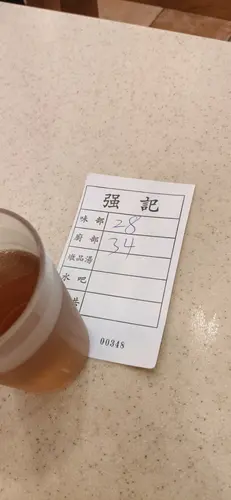 强記
味部 28
廚部 34
燉品湯
水吧
00348